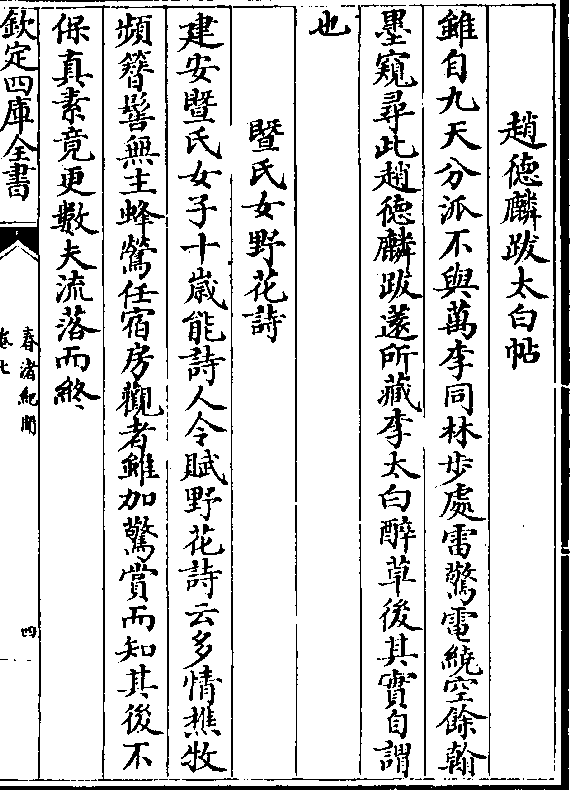 趙德麟跋太白帖
雖自九天分派不與萬李同林步處雷驚電繞空餘翰
墨窺尋此趙德麟跋薳所藏李太白醉草後其實自謂
也
暨氏女野花詩
建安暨氏女子十歲能詩人令賦野花詩云多情樵牧
頻簪髻無主蜂鶯任宿房觀者雖加驚賞而知其後不
保真素竟更數夫流落而終
欽定四庫全書
春渚紀聞
卷七
四